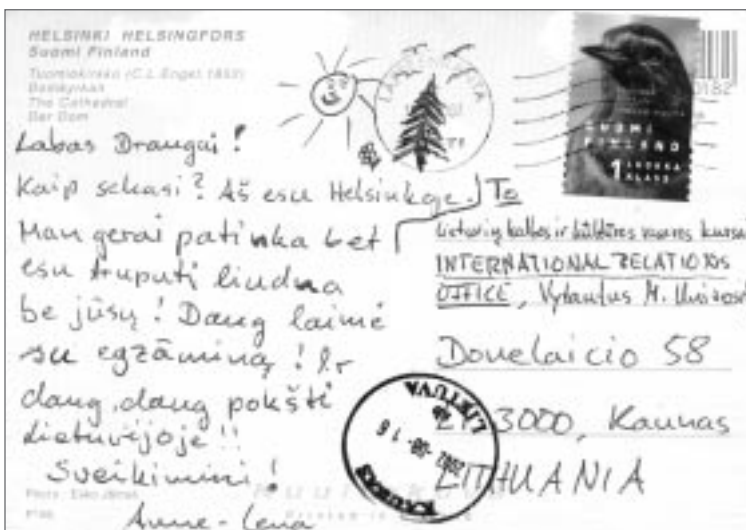 HELSINKI HELSINGFORS
Suomi Finland
Tuomiokirkko (C.L. Engel 1852)
Domkyrkan
The Cathedral
Der Dom
Labas Draugai!
Kaip sekasi? Aš esu Helsinkoje.
Man gerai patinka bet
esu truputi liudna
be jūsų! Daug laimė
su egzāminą! Ir
daug, daug pokšti
Lietuvijoje!!
Sveikimini!
Anne-Lena
SUOMI
FINLAND
1 LUOKKA
KLASS
0182
To
Lietuvių kalbos ir kultūros vasaros kursai
INTERNATIONAL RELATIONS
OFFICE, Vytautus M.
Donelaicio 58
LT-3000, Kaunas
LITHUANIA
LIETUVA
2002-08-16
KAUNAS